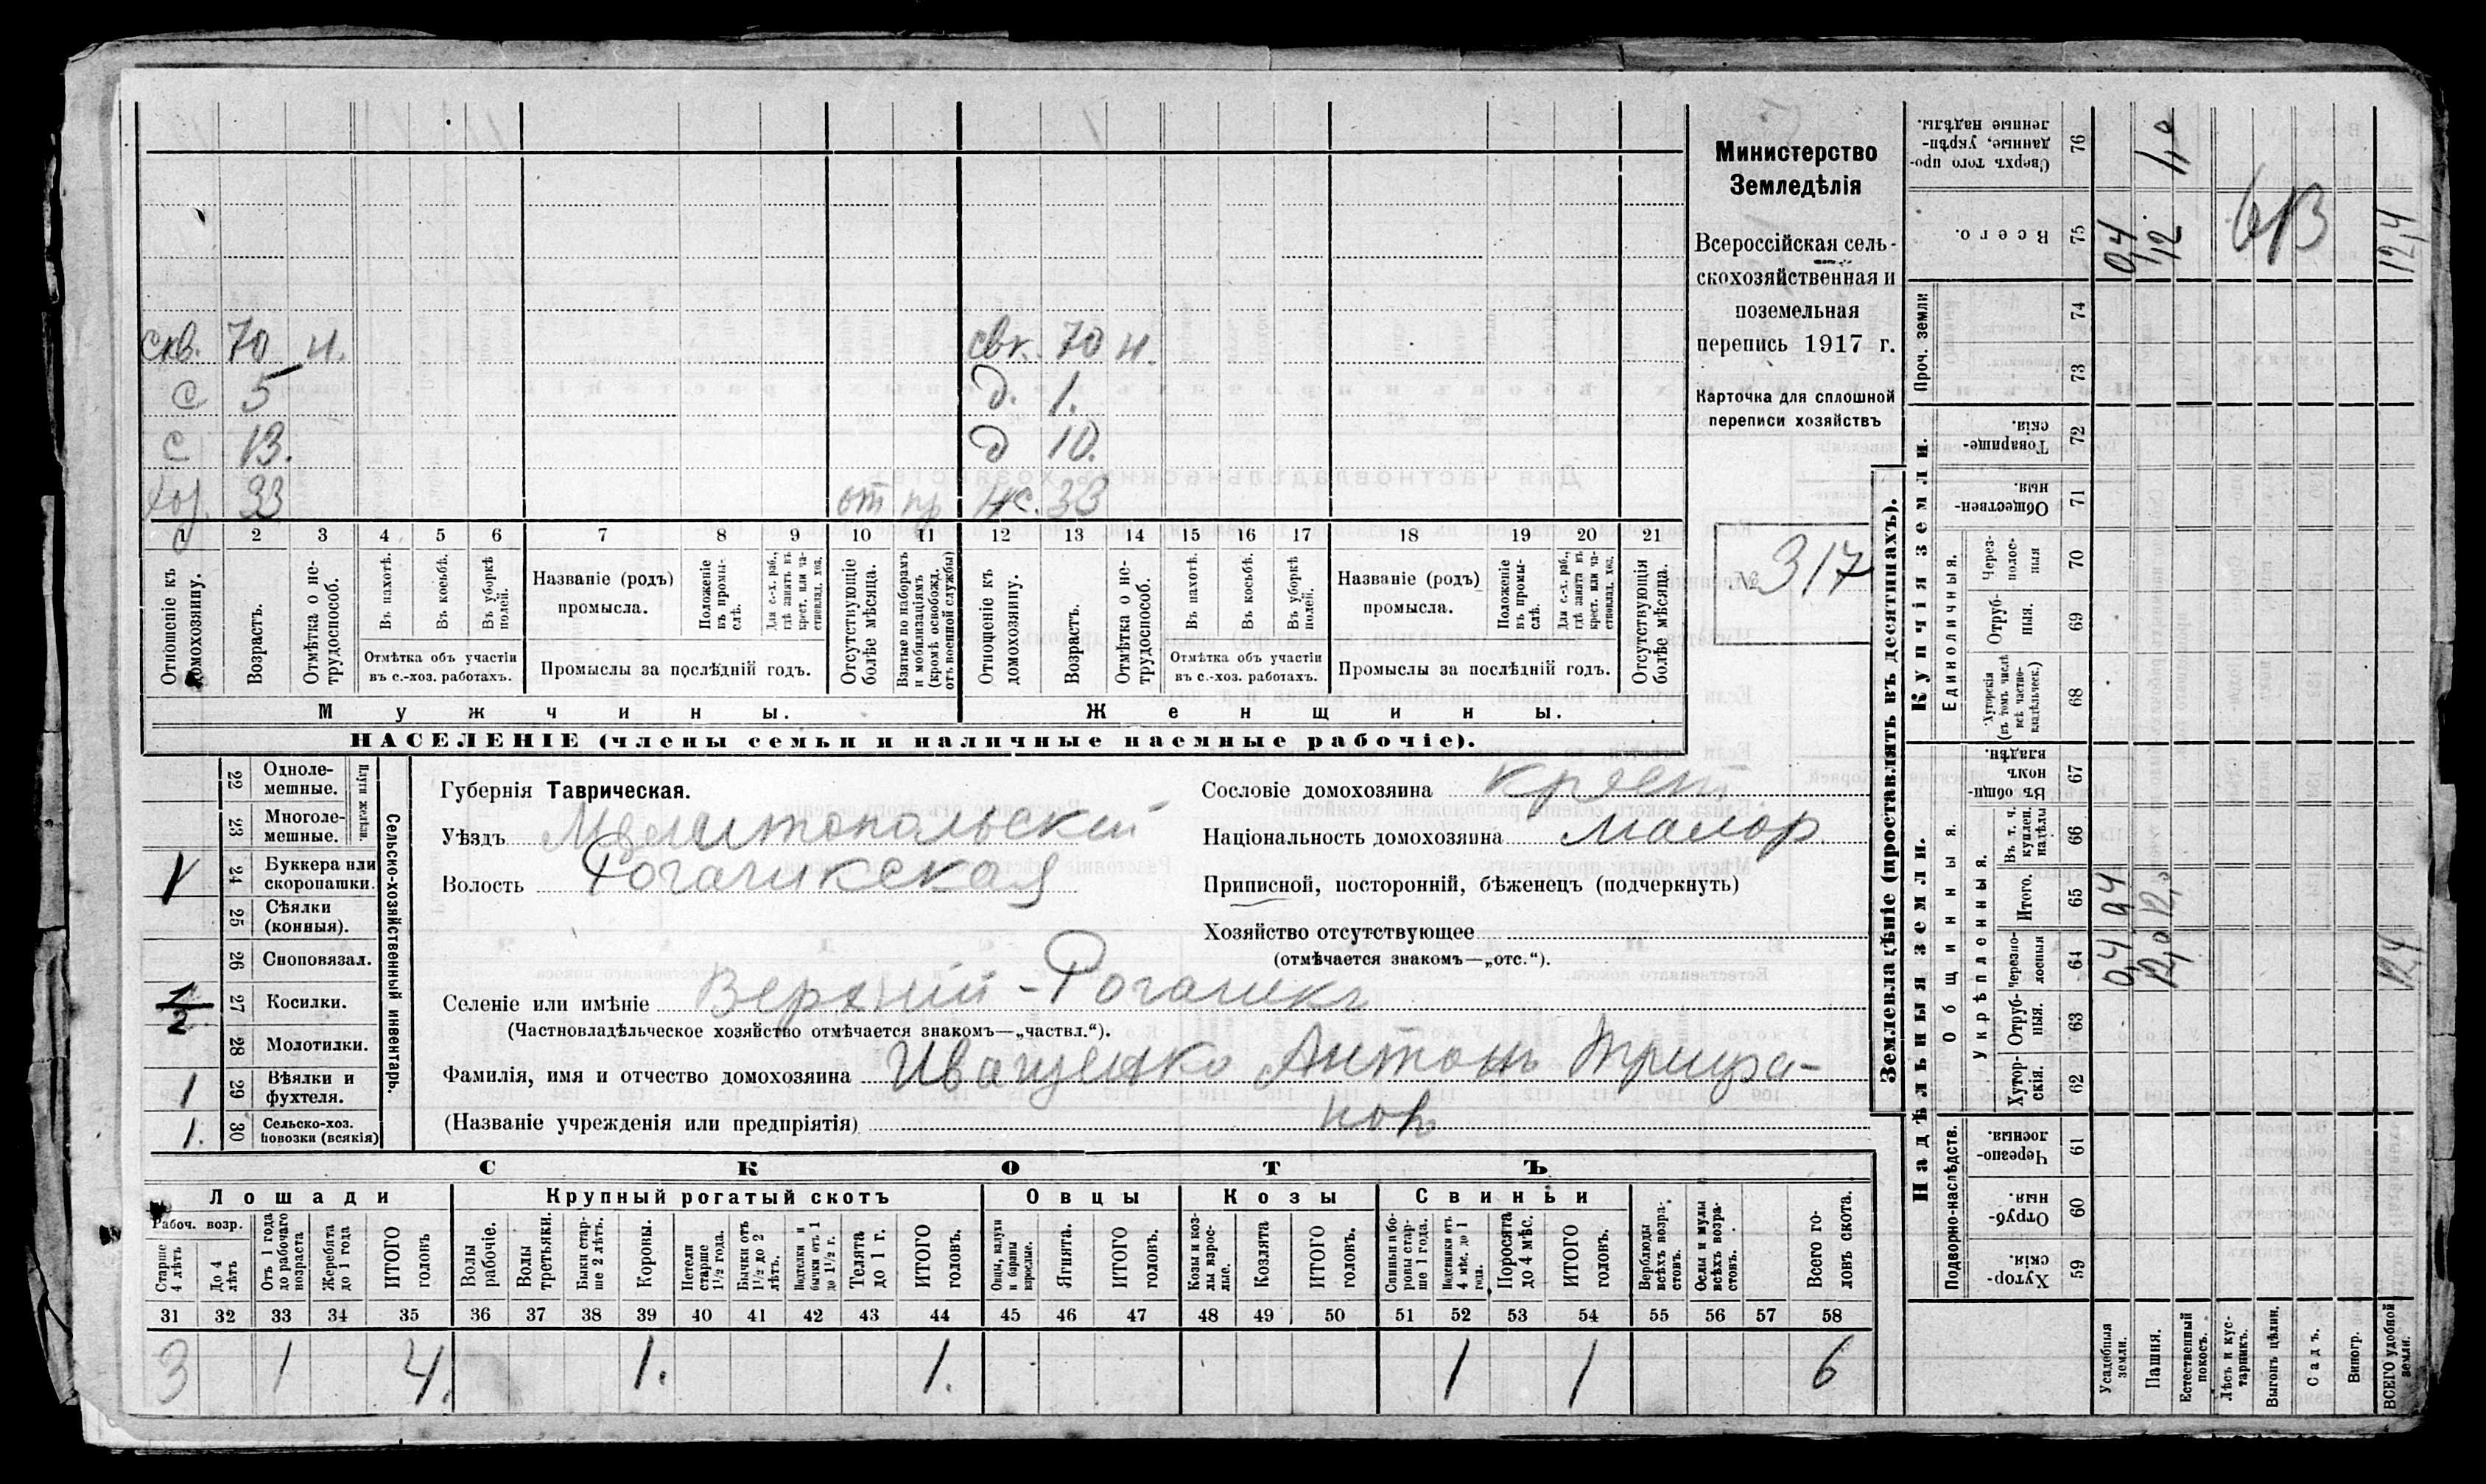 скв. 70 н. свк. 70 н.
с 5 д. 1.
с 13. д 10.
хоз. 33 от пр ж. 33
1 2 3 4 5 6 7 8 9 10 11 12 13 14 15 16 17 18 19 20 21
Отношеніе къ домохозяину.
Возрастъ.
Отмѣтка о нетрудоспособ.
Въ пахотѣ.
Въ косьбѣ.
Въ уборкѣ полей.
Отмѣтка объ участіи
въ с.-хоз. работахъ.
Названіе (родъ)
промысла.
Положеніе въ промыслѣ.
Для с.-х. раб., гдѣ занятъ въ крест. или частновлад. хоз.
Промыслы за послѣдній годъ.
Отсутствующіе болѣе мѣсяца.
Взятые по наборамъ и мобилизаціямъ (кромѣ освобожд. отъ военной службы)
Отношеніе къ домохозяину.
Возрастъ.
Отмѣтка о нетрудоспособ.
Въ пахотѣ.
Въ косьбѣ.
Въ уборкѣ полей.
Отмѣтка объ участіи
въ с.-хоз. работахъ.
Названіе (родъ)
промысла.
Положеніе въ промыслѣ.
Для с.-х. раб., гдѣ занята въ крест. или частновлад. хоз.
Промыслы за послѣдній годъ.
Отсутствующія болѣе мѣсяца.
Мужчины. Женщины.
НАСЕЛЕНІЕ (члены семьи и наличные наемные рабочіе).
Министерство
Земледѣлія
Всероссійская сель-
скохозяйственная и
поземельная
перепись 1917 г.
Карточка для сплошной
переписи хозяйствъ
№ 317
Сельско-хозяйственный инвентарь.
Плуги желѣзн.
22 Однолемешные.
23 Многолемешные.
1 24 Буккера или скоропашки.
25 Сѣялки (конныя).
26 Сноповязал.
1/2 27 Косилки.
28 Молотилки.
1 29 Вѣялки и фухтеля.
1. 30 Сельско-хоз. повозки (всякія)
Губернія Таврическая.
Уѣздъ Мелитопольскій
Волость Рогачикская
Сословіе домохозяина крест
Національность домохозяина малор.
Приписной, посторонній, бѣженецъ (подчеркнуть)
Хозяйство отсутствующее
(отмѣчается знакомъ—„отс.“).
Селеніе или имѣніе Верхній-Рогачикъ
(Частновладѣльческое хозяйство отмѣчается знакомъ—„частвл.“).
Фамилія, имя и отчество домохозяина Иващенко Антонъ Трифо-
(Названіе учрежденія или предпріятія) новъ
СКОТЪ
Лошади Крупный рогатый скотъ Овцы Козы Свиньи
Рабоч. возр.
Старше 4 лѣтъ
До 4 лѣтъ
Отъ 1 года до рабочаго возраста
Жеребята до 1 года
ИТОГО головъ
Волы рабочіе.
Волы третьяки.
Быки старше 2 лѣтъ.
Коровы.
Нетели старше 1½ года.
Бычки отъ 1½ до 2 лѣтъ.
Подтелки и бычки отъ 1 до 1½ г.
Телята до 1 г.
ИТОГО головъ.
Овцы, валухи и бараны взрослые.
Ягнята.
ИТОГО головъ.
Козы и козлы взрослые.
Козлята
ИТОГО головъ.
Свиньи и боровы старше 1 года.
Подсвинки отъ 4 мѣс. до 1 года.
Поросята до 4 мѣс.
ИТОГО головъ.
Верблюды всѣхъ возрастовъ.
Ослы и мулы всѣхъ возрастовъ.
Всего головъ скота.
31 32 33 34 35 36 37 38 39 40 41 42 43 44 45 46 47 48 49 50 51 52 53 54 55 56 57 58
3 1 4. 1. 1. 1 1 6
Землевладѣніе (проставлять въ десятинахъ).
Надѣльныя земли. Купчія земли.
Проч. земли
Подворно-наслѣдств.
Общинныя.
Укрѣпленныя.
Единоличныя.
76 Сверхъ того проданные, укрѣпленные надѣлы.
75 Всего.
74
73
72 Товарищескія.
71 Общественныя.
70 Черезполосныя
69 Отрубныя.
68 Хуторскія (въ томъ числѣ всѣ частновладѣльческ.)
67 Въ общинномъ владѣн.
66 Въ т. ч. куплен. надѣлы
65 Итого.
64 Черезполосныя
63 Отрубныя.
62 Хуторскія.
61 Черезполосныя.
60 Отрубныя.
59 Хуторскія.
Усадебныя земли.
Пашня.
Естественный покосъ.
Лѣсъ и кустарникъ.
Выгонъ цѣлин.
Садъ.
Виногр.
ВСЕГО удобной земли.
0,4 12 12,4
0,4 12,0
0,4 12,0 12,4